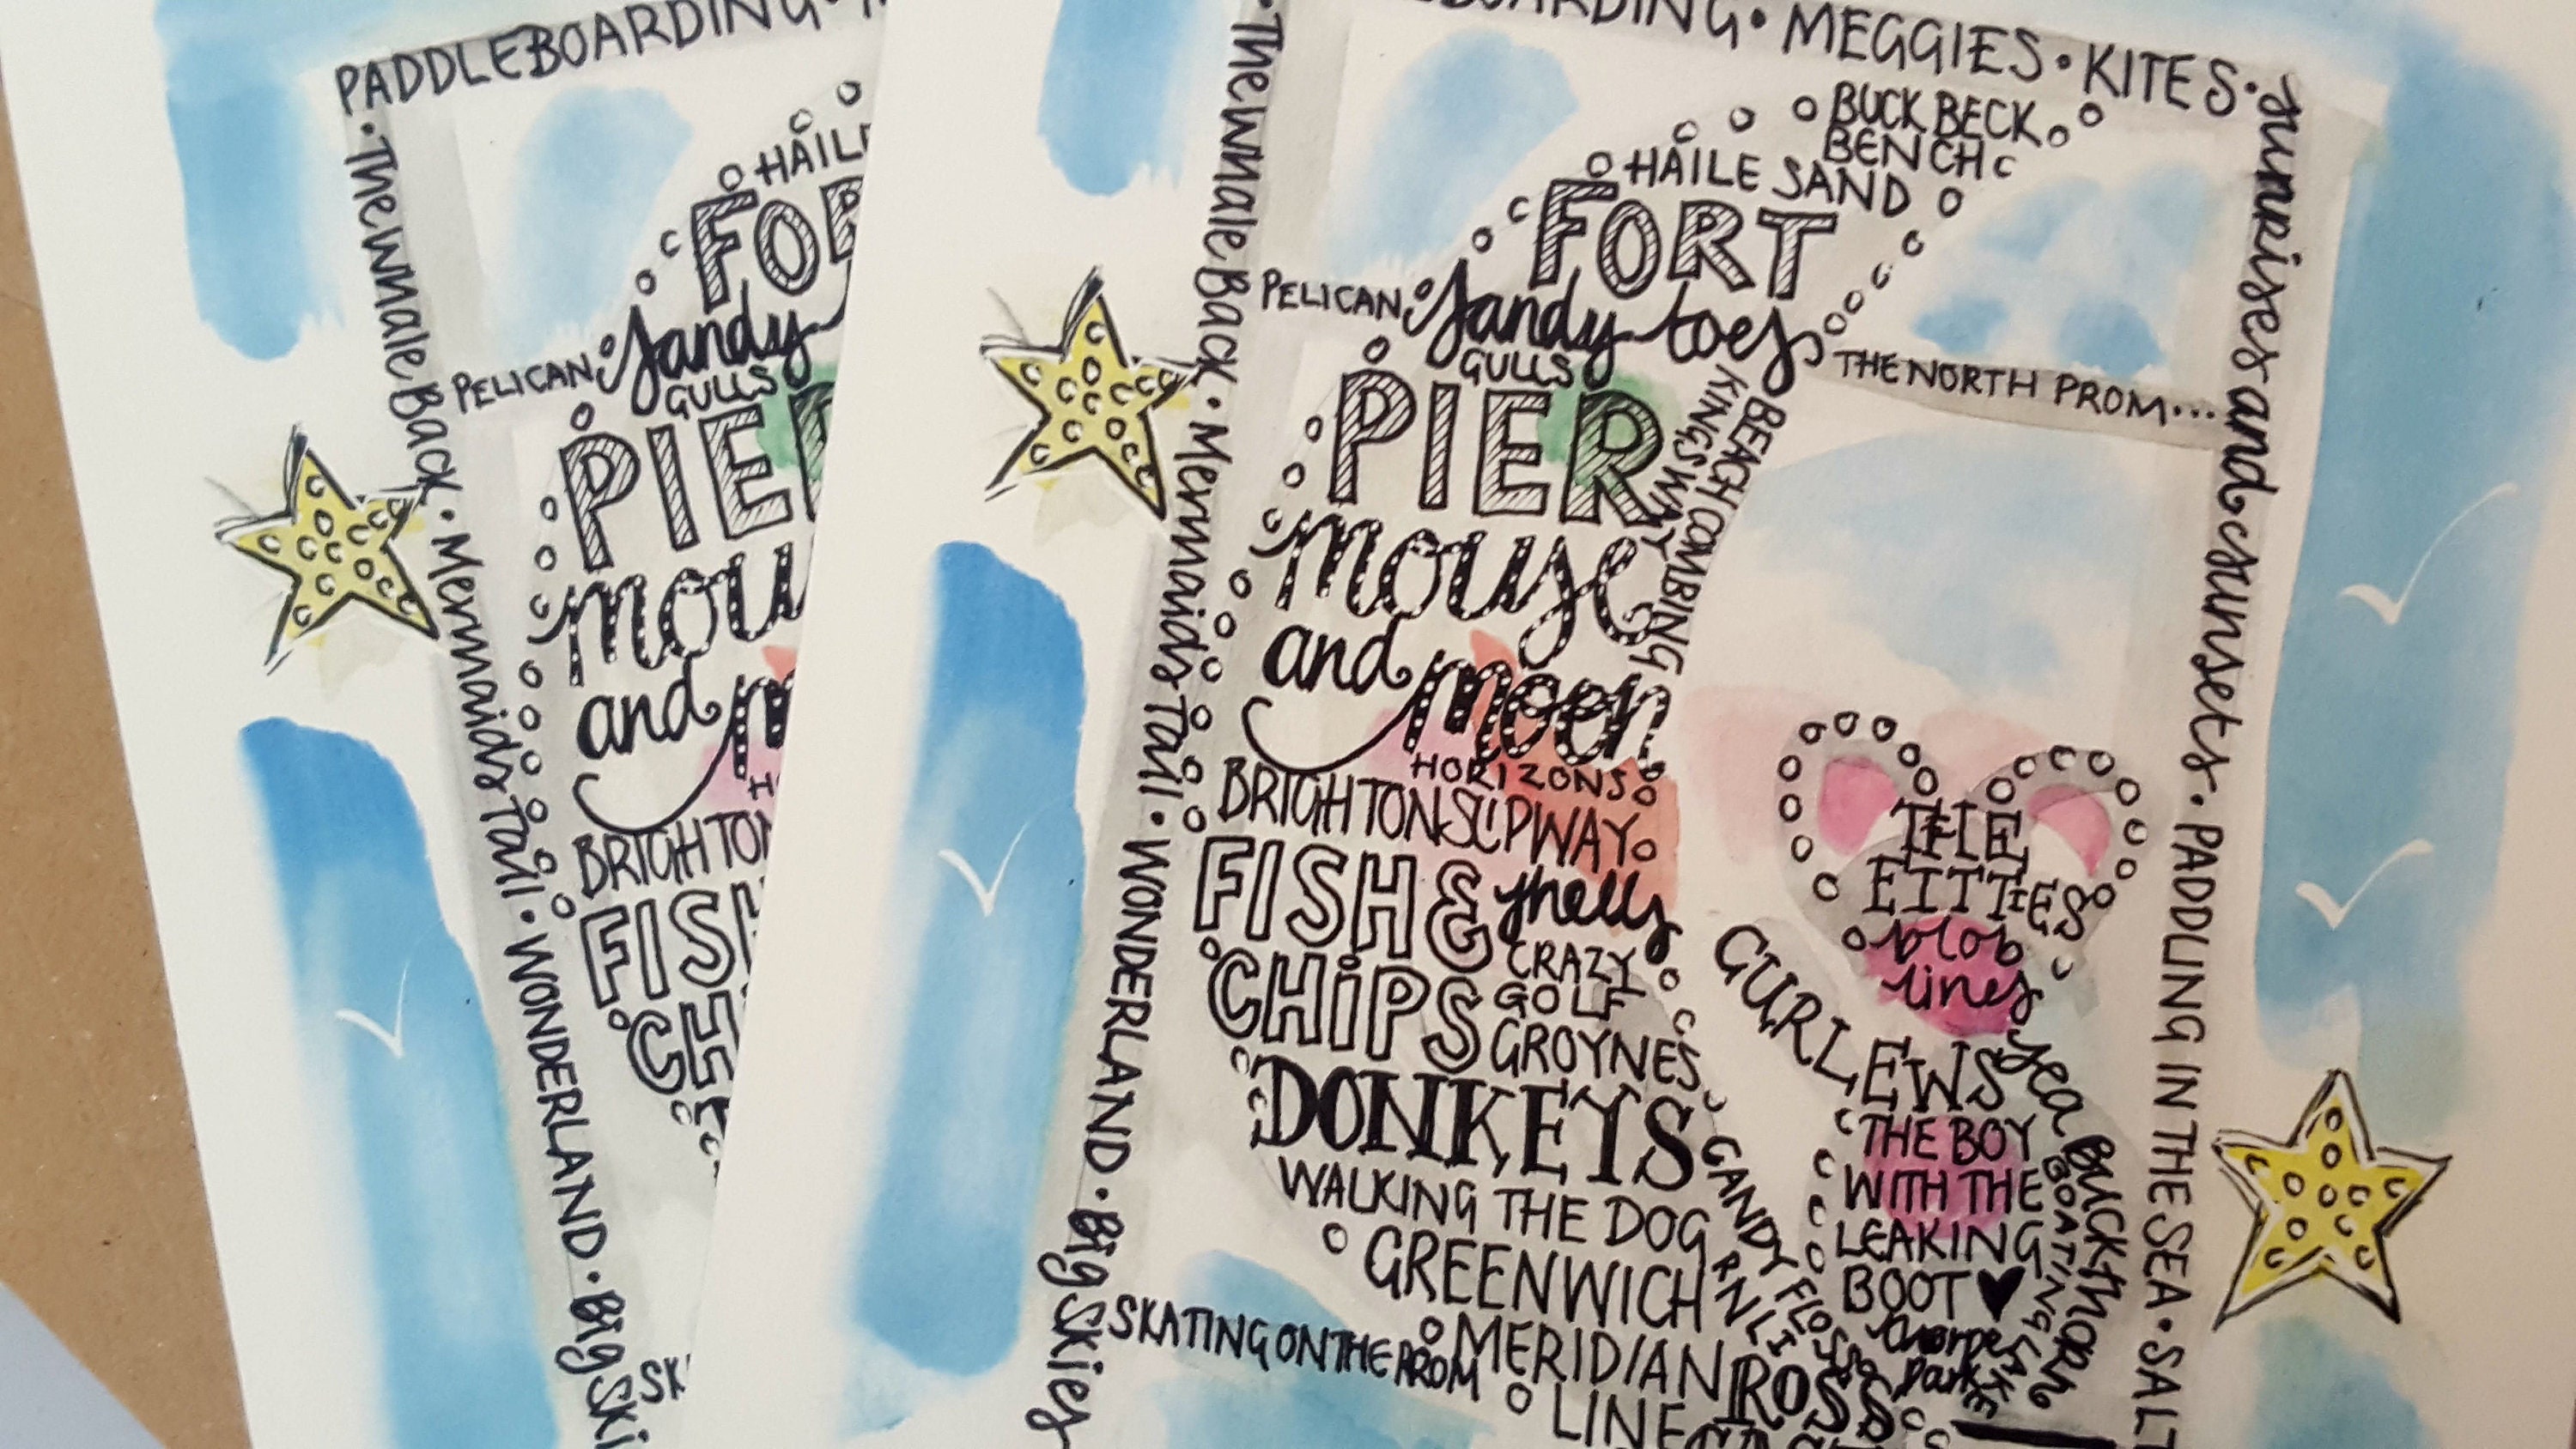 PADDLEBOARDING
• The whale Back • Mermaids Tail • WONDERLAND • Big Ski
HAILE
FOR
PELICAN
Sandy
GULLS
PIER
mou
and m
BRIGHTON
FISH
CH
SK
BOARDING • MEGGIES • KITES •
sunrises and sunsets • PADDLING IN THE SEA • SALT
• The whale Back • Mermaids Tail • WONDERLAND • Big Skies
BUCK BECK
BENCH
HAILE SAND
FORT
PELICAN
Sandy toes
THE NORTH PROM...
GULLS
PIER
KINGSWAY
BEACH COMBING
mouse
and moon
HORIZONS
BRIGHTON SLIPWAY
FISH & shells
CHIPS
CRAZY
GOLF
GROYNES
DONKEYS
WALKING THE DOG
GREENWICH
MERIDIAN
LINE
SKATING ON THE PROM
CANDY FLOSS
RNLI
ROSS
THE
FITTIES
blob
lines
CURLEWS
sea BUCKTHORN
THE BOY
WITH THE
LEAKING
BOOT ♥
BOATING LAKE
thorpe
park